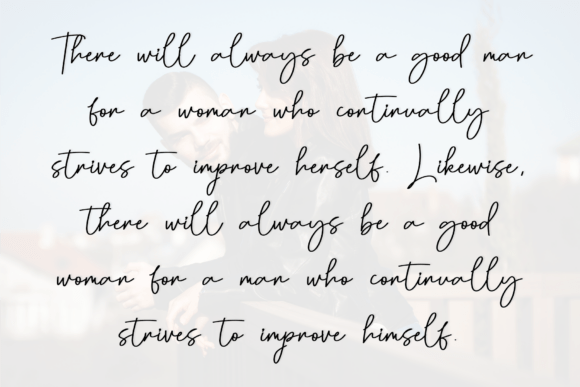 There will always be a good man
for a woman who continually
strives to improve herself. Likewise,
there will always be a good
woman for a man who continually
strives to improve himself.